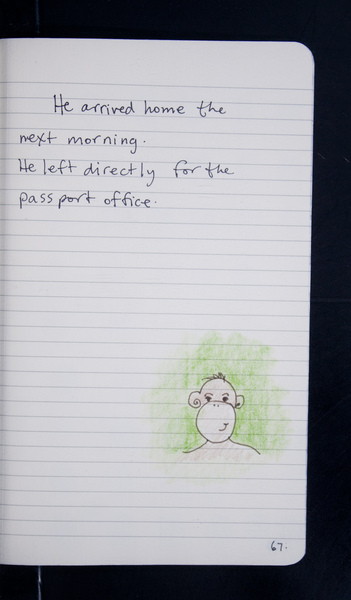 He arrived home the
next morning.
He left directly for the
passport office.
67.